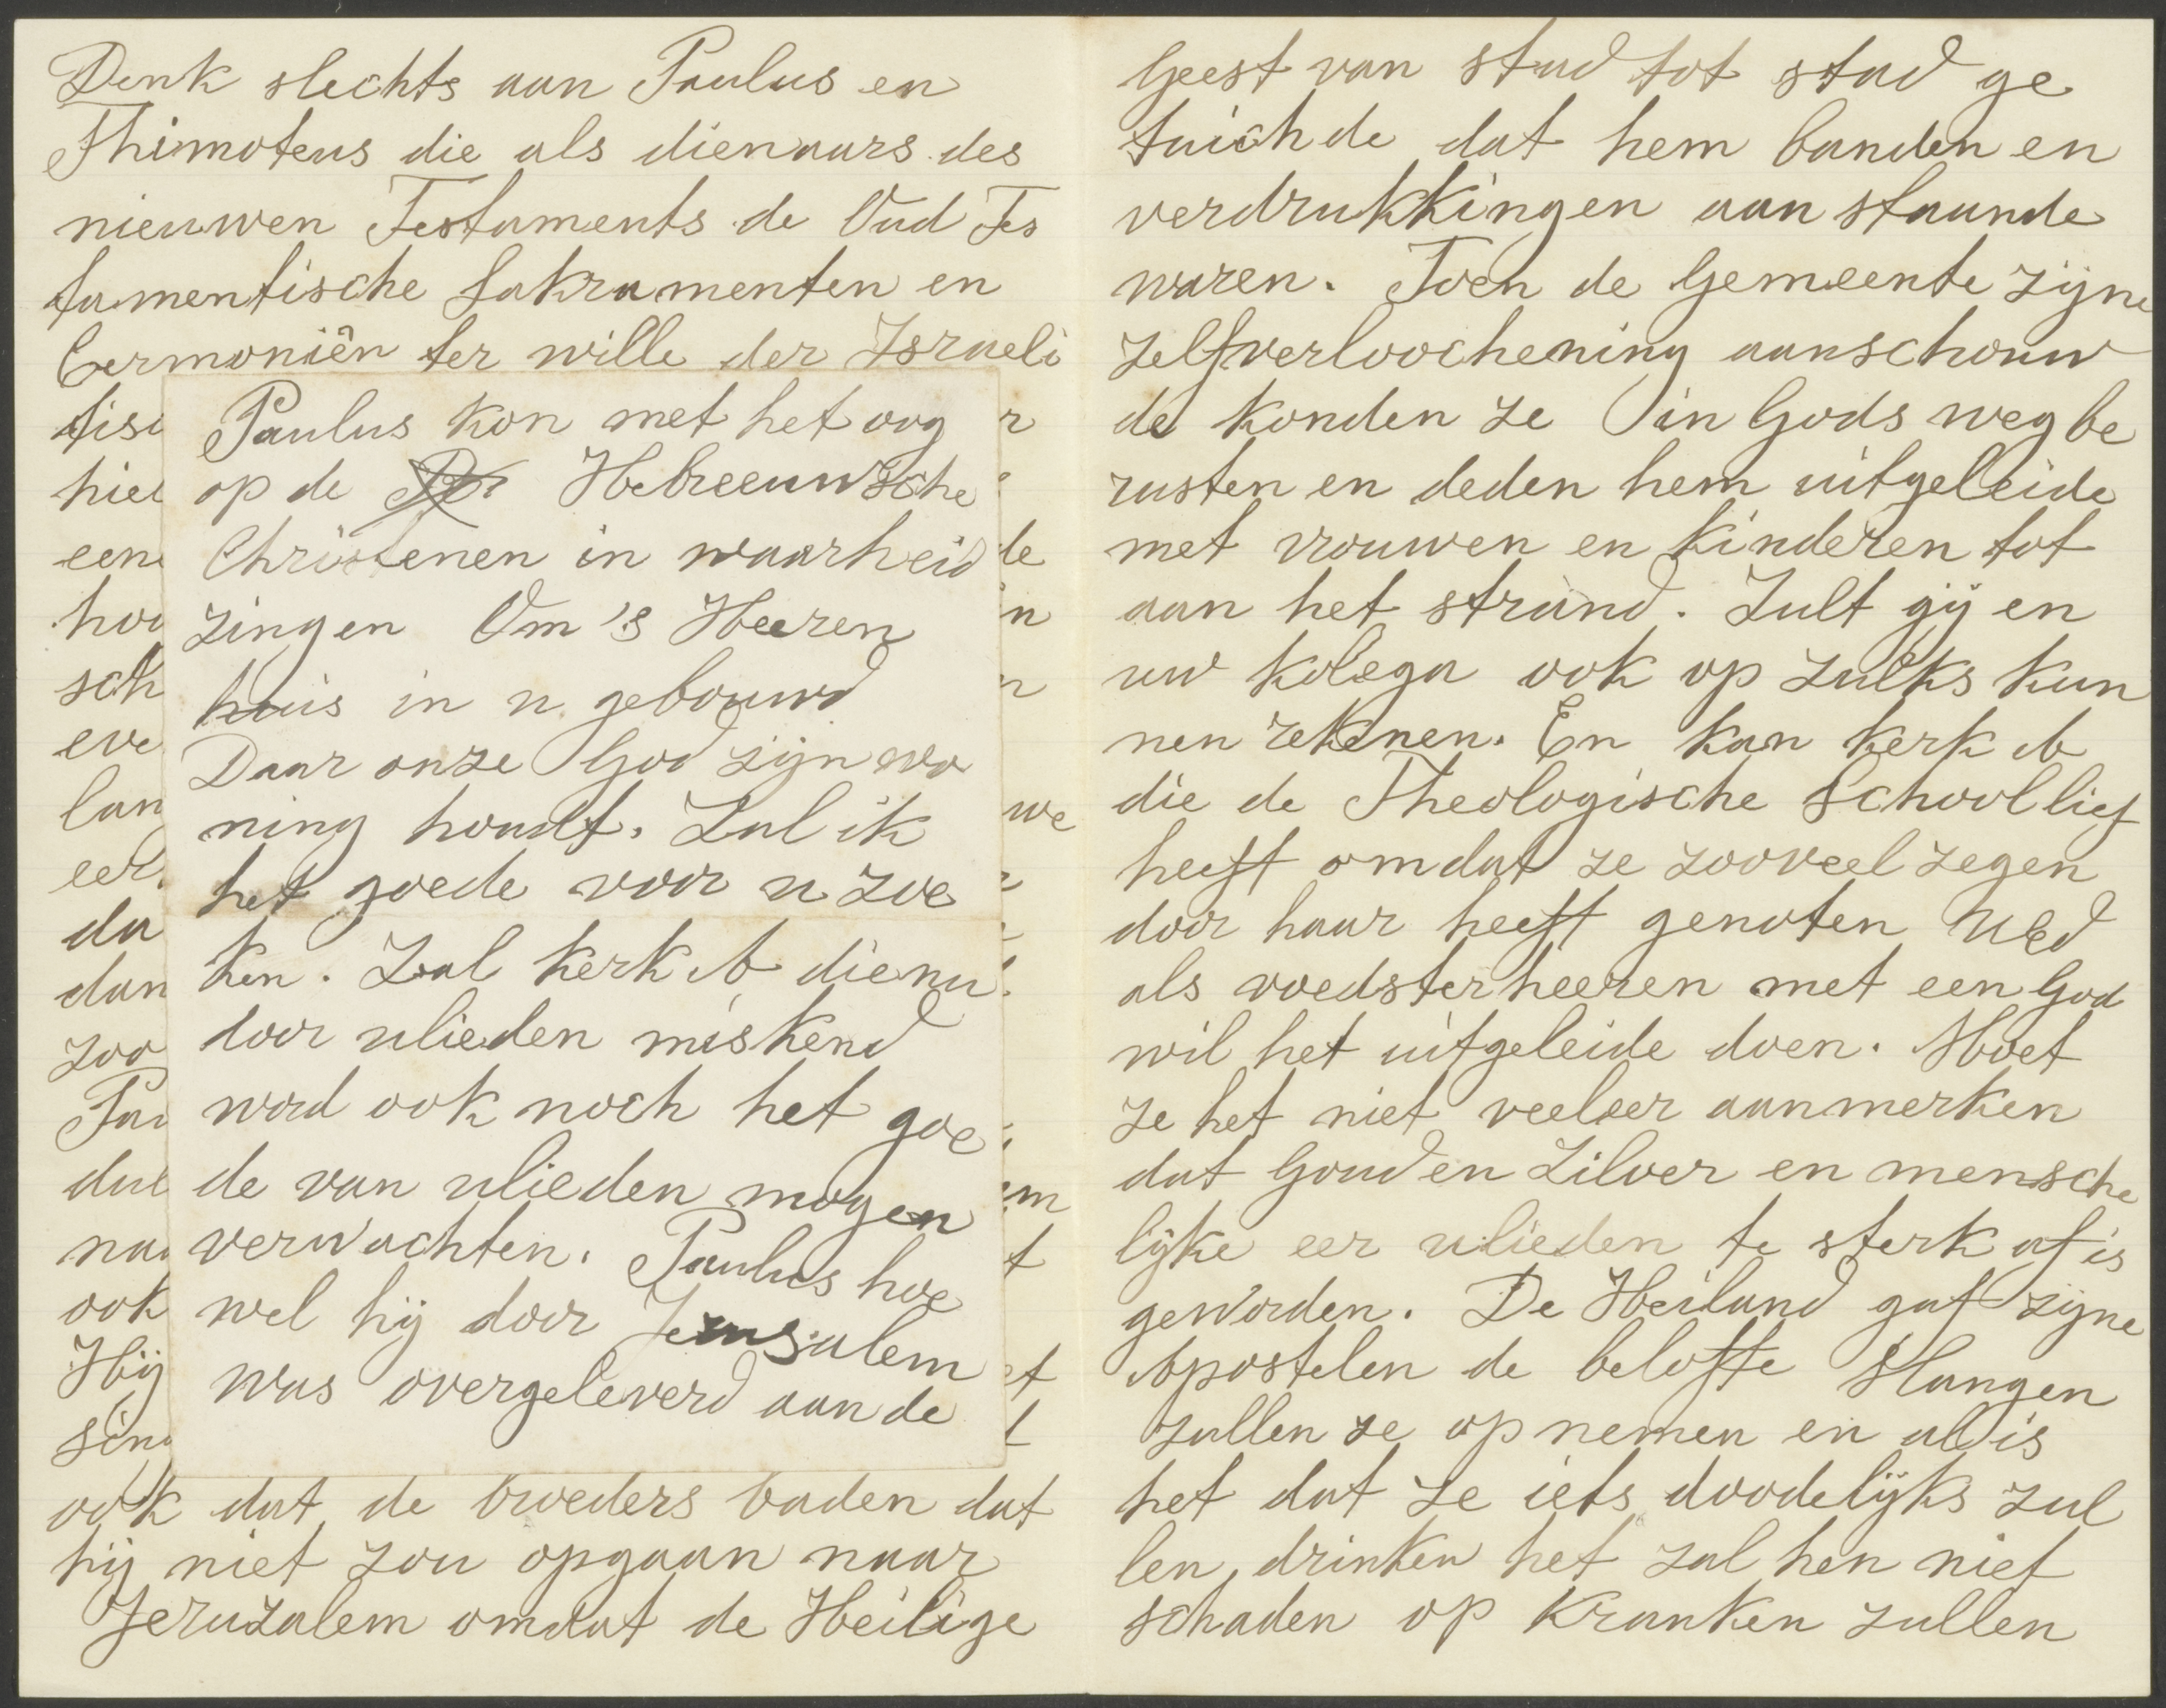 Denk slechts aan Paulus en
Thimoteus die als dienaars des
nieuwen Testaments de Oud Tes
tamentische Sakramenten en
Cermoniën ter wille der Israeli
tis
hie
een
hoo
sch
eve
lan
eer
da
dan
zoo
Pau
dul
na
ook
Hij
sin
r
de
n
n
we
em
t
et
t
Paulus kon met het oog
op de Hebreeuwsche
Christenen in waarheid
zingen Om 's Heeren
huis in u gebouwd
Daar onze God zijn wo
ning houdt. Zal ik
het goede voor u zoe
ken. Zal kerk A die nu
door ulieden miskend
word ook noch het goe
de van ulieden mogen
verwachten. Paulus hoe
wel hij door Jerusalem
was overgeleverd aan de
ook dat de broeders baden dat
hij niet zou opgaan naar
Jeruzalem omdat de Heilige
Geest van stad tot stad ge
tuichde dat hem banden en
verdrukkingen aanstaande
waren. Toen de Gemeente zijne
zelfverloochening aanschouw
de konden ze in Gods weg be
rusten en deden hem uitgeleide
met vrouwen en kinderen tot
aan het strand. Zult gij en
uw kolega ook op zulks kun
nen rekenen. En kan kerk A
die de Theologische School lief
heeft omdat ze zooveel zegen
door haar heeft genoten UEd
als voedsterheeren met een God
wil het uitgeleide doen. Moet
ze het niet veeleer aanmerken
dat Goud en Zilver en mensche
lijke eer ulieden te sterk af is
geworden. De Heiland gaf zijne
Apostelen de belofte Slangen
zullen ze opnemen en al is
het dat ze iets doodelijks zul
len drinken het zal hen niet
schaden op Kranken zullen